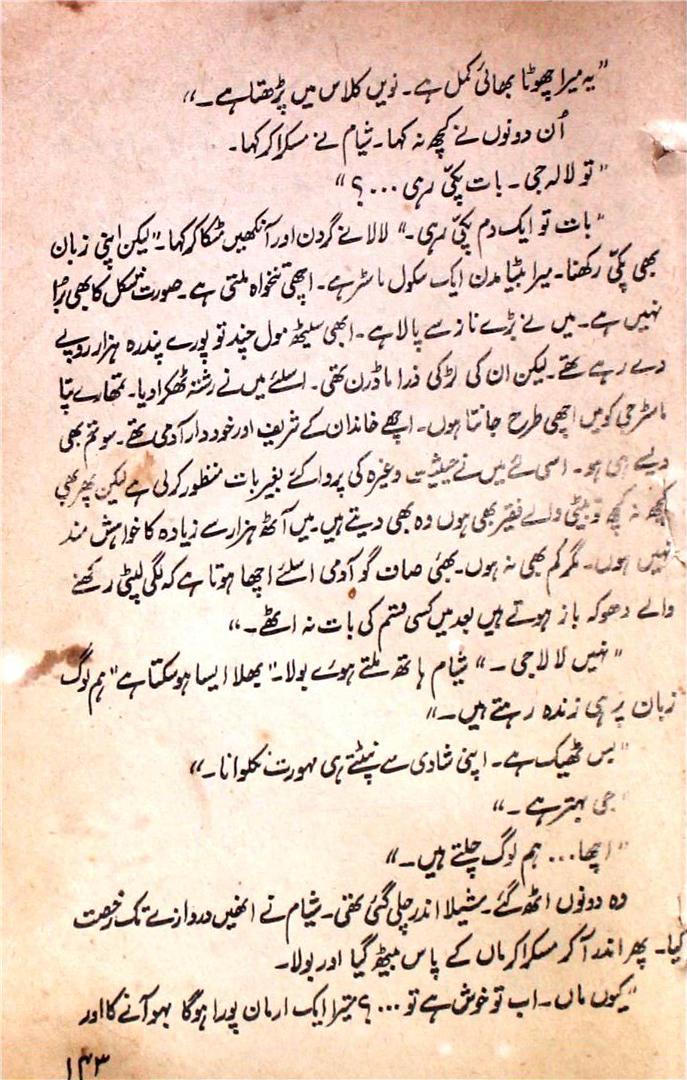 "یہ میرا چھوٹا بھائی کمل ہے۔ نویں کلاس میں پڑھتا ہے۔"
اُن دونوں نے کچھ نہ کہا۔ شیام نے مسکرا کر کہا۔
"تو لالہ جی۔ بات پکیّ رہی...؟"
"بات تو ایک دم پکیّ رہی۔" لالا نے گردن اور آنکھیں مٹکا کر کہا۔ "لیکن اپنی زبان
بھی پکیّ رکھنا۔ میرا بٹیا مدن ایک سکول ماسٹر ہے۔ اچھی تنخواہ ملتی ہے۔ صورت شکل کا بھی بُرا
نہیں ہے۔ میں نے بڑے ناز سے پالا ہے۔ ابھی سیٹھ مول چند تو پورے پندرہ ہزار روپے
دے رہے تھے۔ لیکن ان کی لڑکی ذرا ماڈرن تھی۔ اسلئے میں نے رشتہ ٹھکرا دیا۔ تمھارے پتا
ماسٹر جی کو میں اچھی طرح جانتا ہوں۔ اچھے خاندان کے شریف اور خوددار آدمی تھے۔ سو تم بھی
ویسے ہی ہو۔ اسی لئے میں نے حیثیت وغیرہ کی پروا کئے بغیر بات منظور کر لی ہے لیکن پھر بھی
کچھ نہ کچھ تو بیٹی والے فقیر بھی ہوں وہ بھی دیتے ہیں۔ میں آٹھ ہزار سے زیادہ کا خواہش مند
نہیں ہوں۔ مگر کم بھی نہ ہوں۔ بھئی صاف گو آدمی اسلئے اچھا ہوتا ہے کہ لگی لپٹی رکھنے
والے دھوکہ باز ہوتے ہیں بعد میں کسی قسم کی بات نہ اٹھے۔"
"نہیں لالا جی۔" شیام ہاتھ ملتے ہوئے بولا۔ "بھلا ایسا ہو سکتا ہے" ہم لوگ
زبان پر ہی زندہ رہتے ہیں۔"
"بس ٹھیک ہے۔ اپنی شادی سے نپٹتے ہی مہورت نکلوانا۔"
"جی بہتر ہے۔"
"اچھا... ہم لوگ چلتے ہیں۔"
وہ دونوں اٹھ گئے۔ شیلا اندر چلی گئی تھی۔ شیام نے انھیں دروازے تک رخصت
کیا۔ پھر اندر آ کر مسکرا کر ماں کے پاس بیٹھ گیا اور بولا۔
"کیوں ماں۔ اب تو خوش ہے تو...؟ تیرا ایک ارمان پورا ہوگا بہو آنے کا اور
۱۴۳